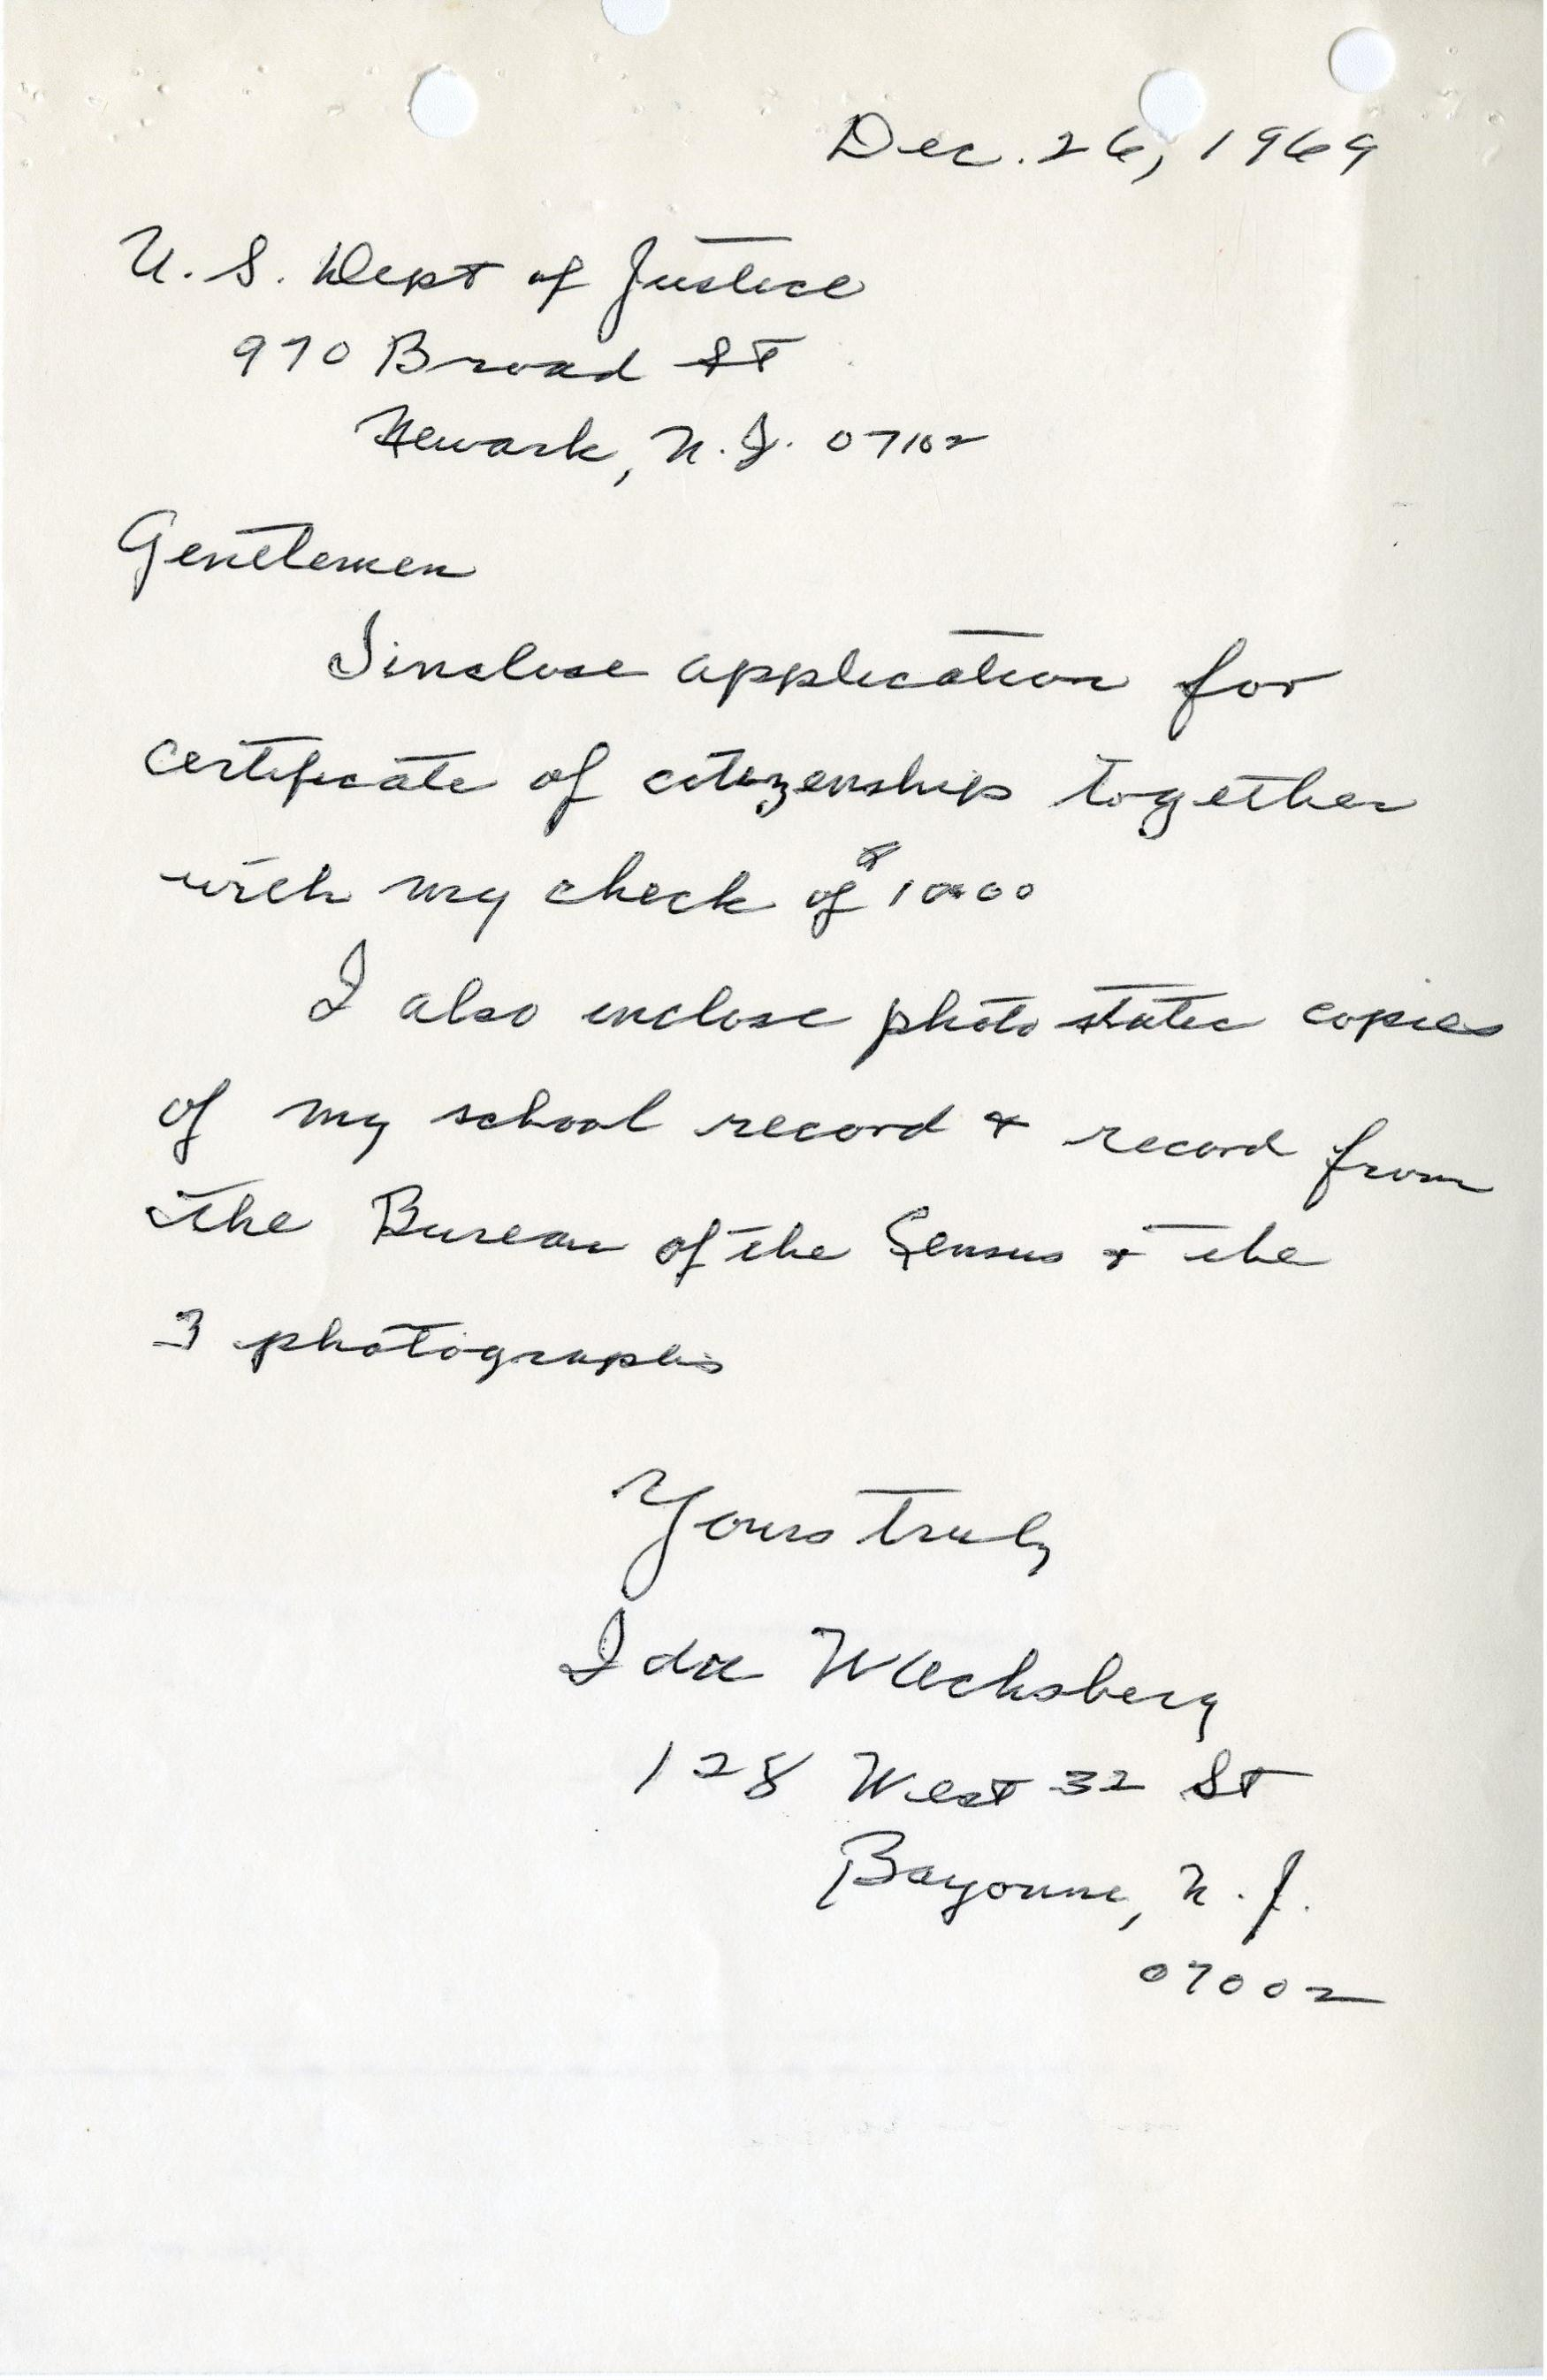 Dec. 26, 1969
U. S. Dept of Justice
970 Broad St
Newark, N. J. 07102
Gentlemen
I inclose application for
certificate of citizenship together
with my check of $10.00
I also enclose photo static copies
of my school record & record from
the Bureau of the Census & the
3 photographs
Yours truly
Ida Wachsberg
128 West 32 St
Bayonne, N. J.
07002